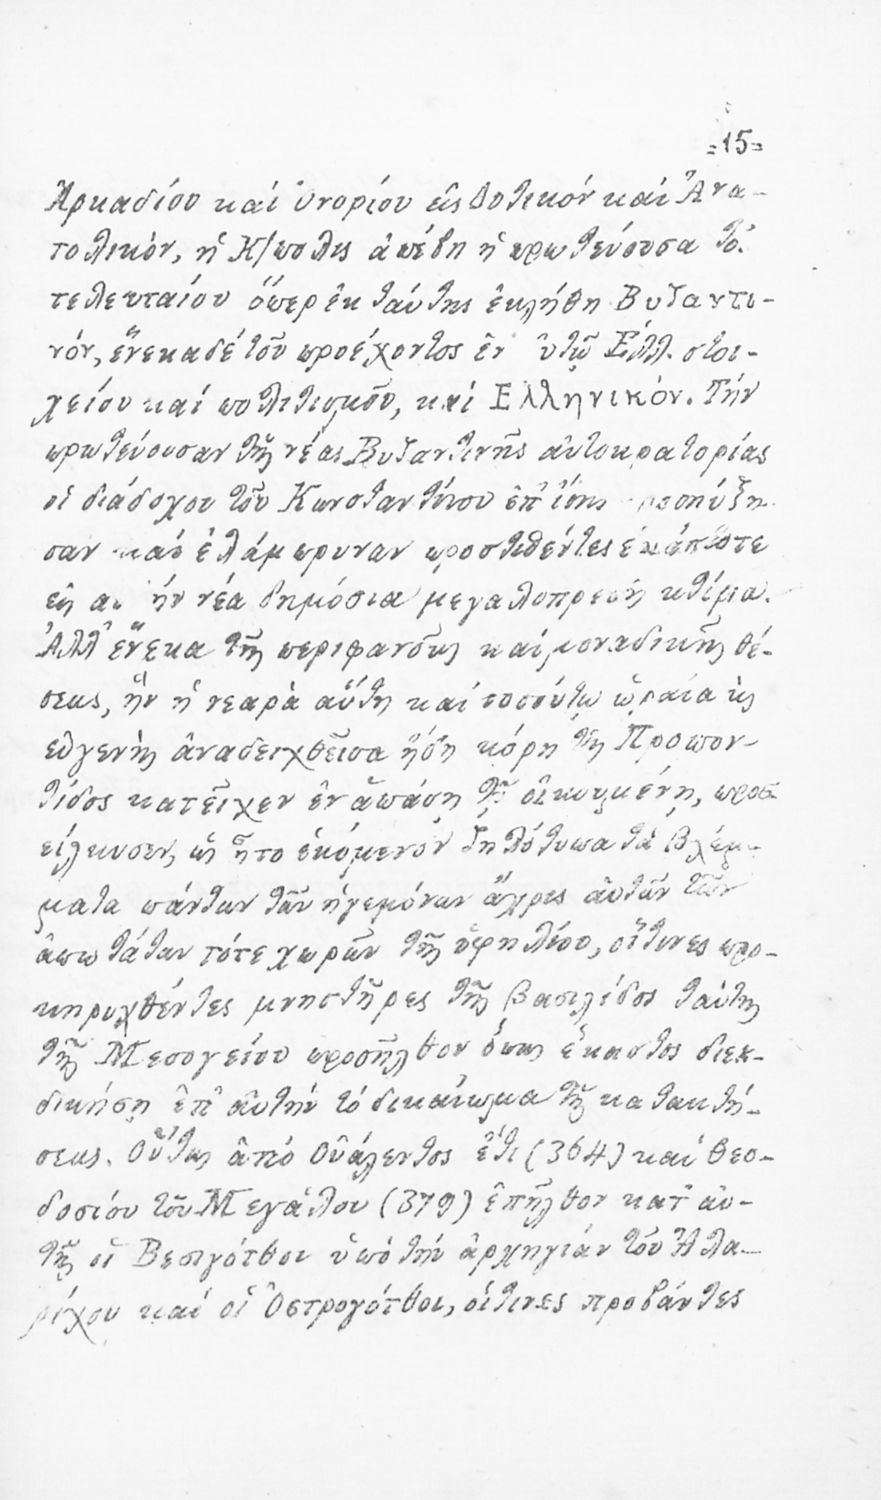 =15=
Ἀρκαδίου καί Ὁνορίου εἰς Δυτικόν καί Ἀνα-
τολικόν, ἡ Κ/πολις ἀπέβη ἡ πρωτεύουσα τοῦ
τελευταίου ὅπερ ἐκ ταύτης ἐκλήθη Βυζαντι-
νόν, ἕνεκα δέ τοῦ προέχοντος ἐν αὐτῷ Ἑλλ. στοι-
χείου καί πολιτισμοῦ, καί Ἑλληνικόν. Τήν
πρωτεύουσαν τῆς νέας Βυζαντινῆς αὐτοκρατορίας
οἱ διάδοχοι τοῦ Κωνσταντίνου ἐπ' ἴσης προσηύξη-
σαν καί ἐλάμπρυναν προστιθέντες ἑκάστοτε
εἰς αὐτήν νέα δημόσια μεγαλοπρεπῆ κτίρια.
Ἀλλ' ἕνεκα τῆς περιφανοῦς καί μοναδικῆς θέ-
σεως, ἥν ἡ νεαρὰ αὕτη καί τοσούτω ὡραία κ̀
εὐγενὴς ἀναδειχθεῖσα ἤδη κόρη τῆς Προπον-
τίδος κατεῖχεν ἐν ἁπάσῃ τῇ οἰκουμένῃ, προσ-
είλκυσεν, ὡς ἦτο ἑπόμενον ζηλότυπα τά βλέμ-
ματα πάντων τῶν ἡγεμόνων ἄχρις αὐτῶν τῶν
ἀπωτάτων τότε χωρῶν τῆς ὑφηλίου, οἵτινες προ-
κηρυχθέντες μνηστῆρες τῆς βασιλίδος ταύτης
τῆς Μεσογείου προσῆλθον ὅπως ἕκαστος διεκ-
δικήσῃ ἐπ' αὐτήν τό δικαίωμα τῆς κατακτή-
σεως. Οὕτως ἀπό Οὐάλεντος ἔτι (364) καί Θεο-
δοσίου τοῦ Μεγάλου (379) ἐπῆλθον κατ' αὐ-
τῆς οἱ Βεσιγότθοι ὑπό τήν ἀρχηγιάν τοῦ Ἀλα-
ρίχου καί οἱ Ὀστρογότθοι, οἵτινες προβάντες